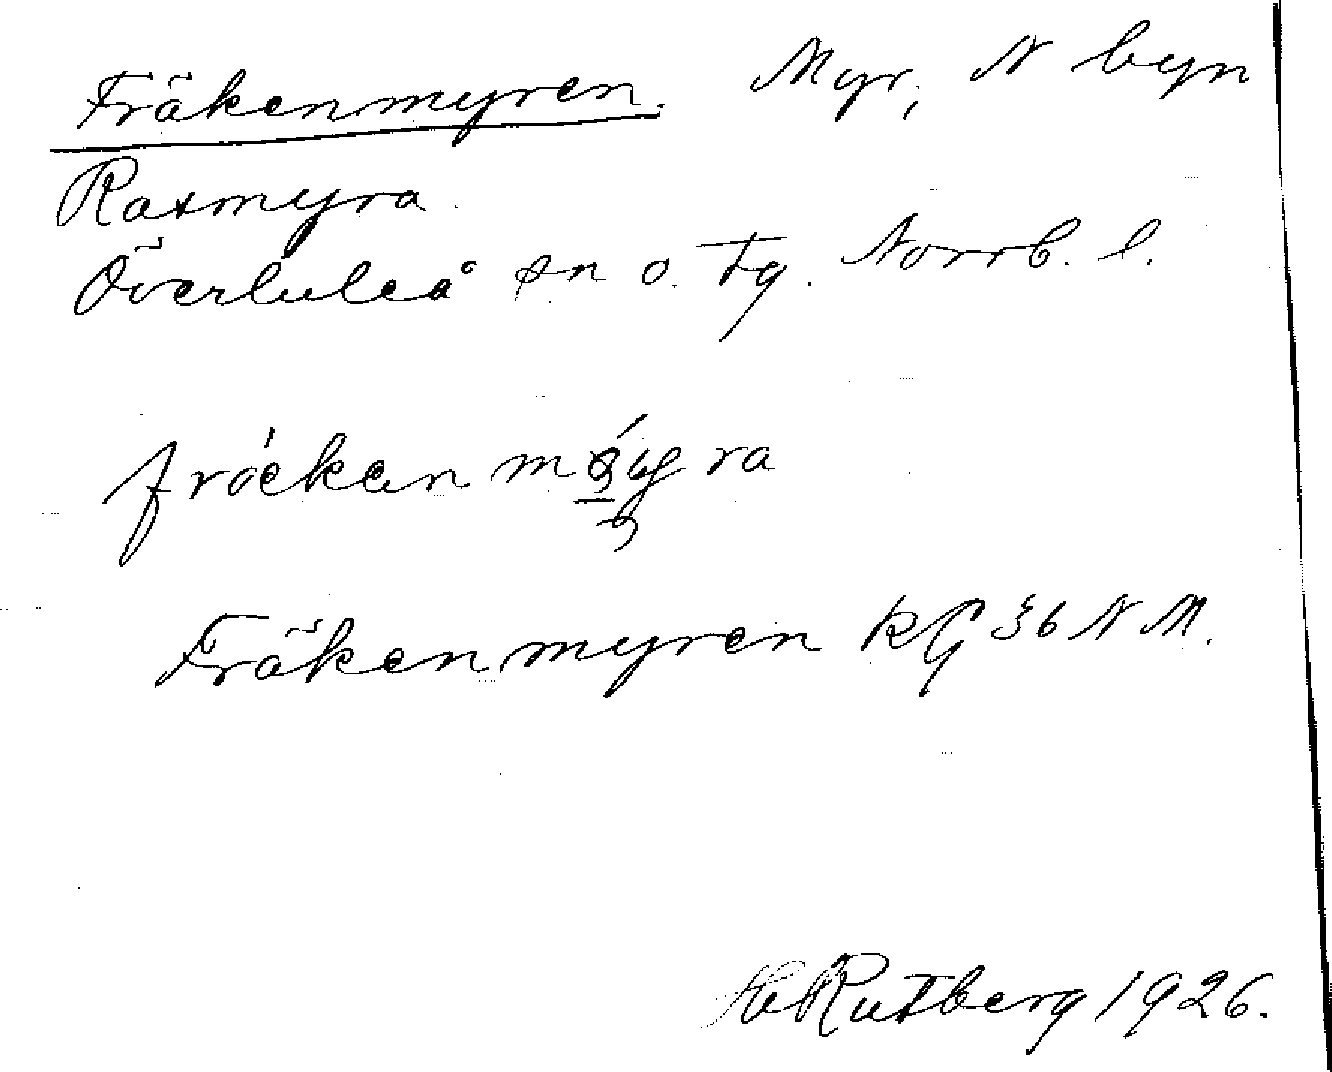 Fräkenmyren. Myr, N byn
Rasmyra
Överluleå sn o. tg. Norrb. l.
Fräkenmyren RG 36 N M.
H Rutberg 1926.